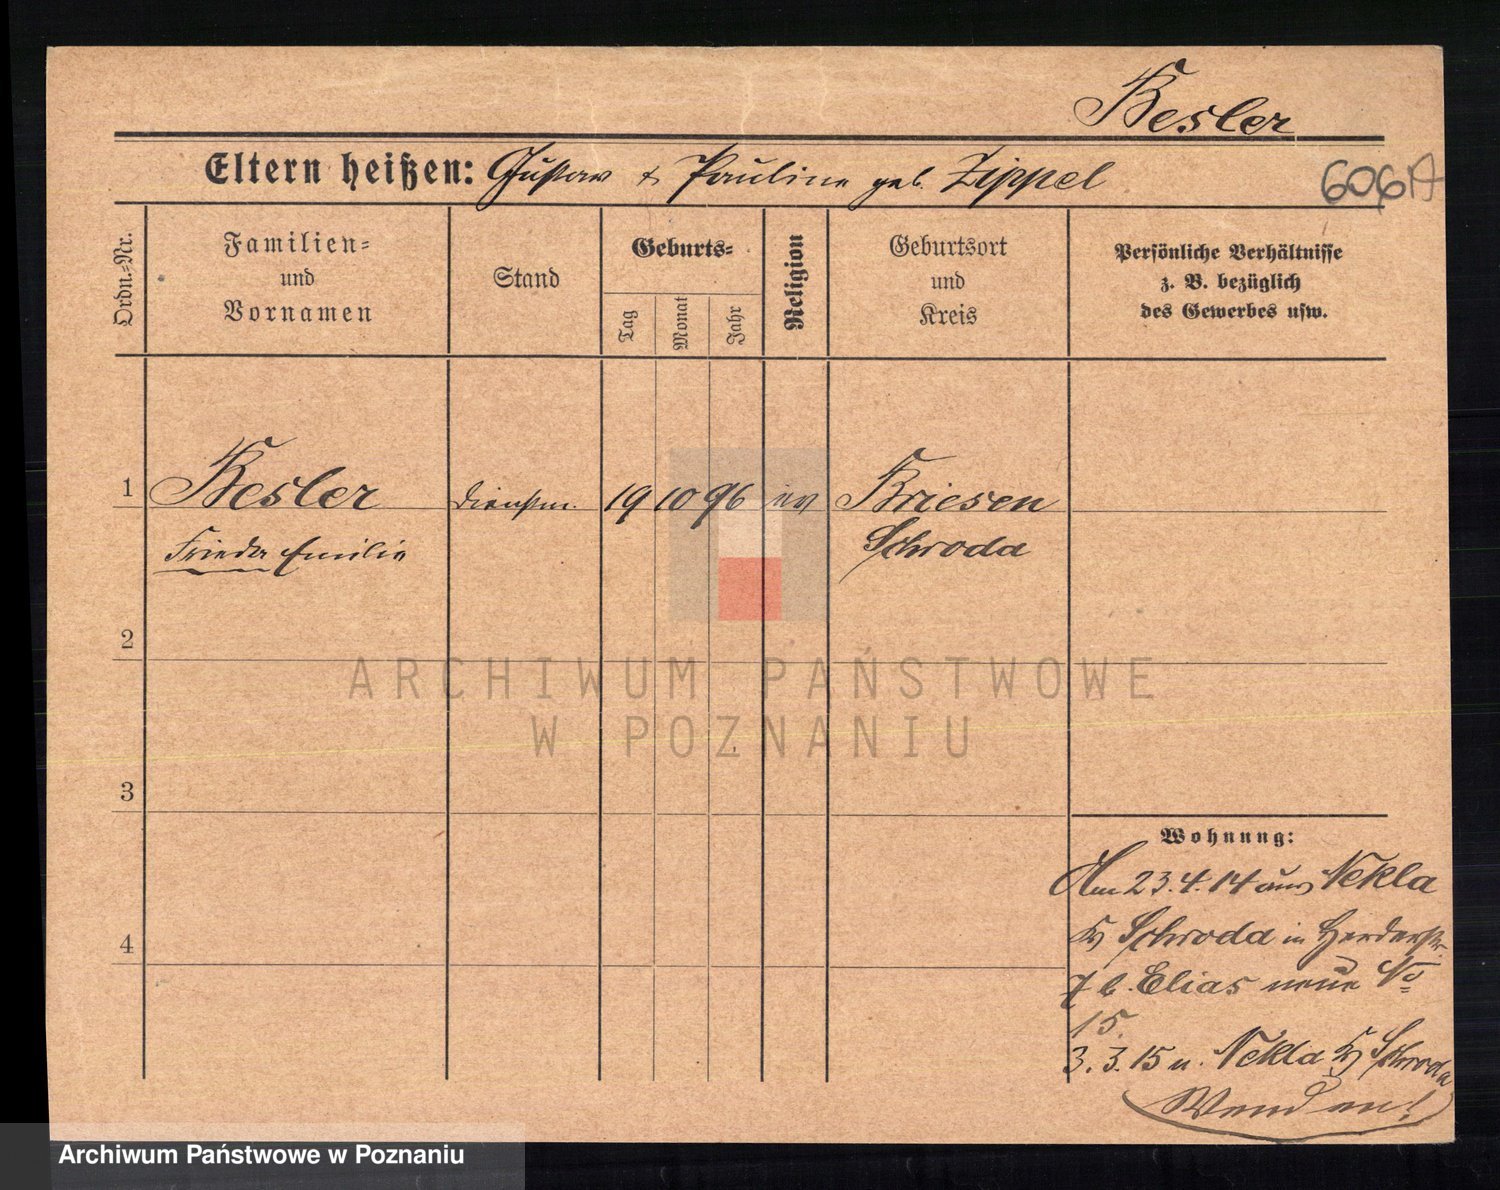 Kesler
Eltern heißen: Gustav & Pauline geb. Zippel
606A
Ordn.-Nr.
Familien-
und
Vornamen
Stand
Geburts-
Tag
Monat
Jahr
Religion
Geburtsort
und
Kreis
Persönliche Verhältnisse
z. B. bezüglich
des Gewerbes usw.
1 Kesler Dienstm. 19 10 96 ev Briesen
Frieda Emilie Schroda
2
3
4
Wohnung:
Am 23.4.14 aus Nekla
Kr Schroda in Herderstr.
7 b. Elias neue No
15.
3.3.15 n. Nekla Kr Schroda
Wenden!
ARCHIWUM PAŃSTWOWE
W POZNANIU
Archiwum Państwowe w Poznaniu